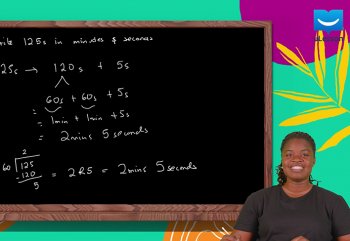 125s in minutes & seconds
25s → 120s + 5s
= 60s + 60s + 5s
= 1min + 1min + 5s
= 2mins 5seconds
2
60 125
-120
5
= 2R5 = 2mins 5seconds